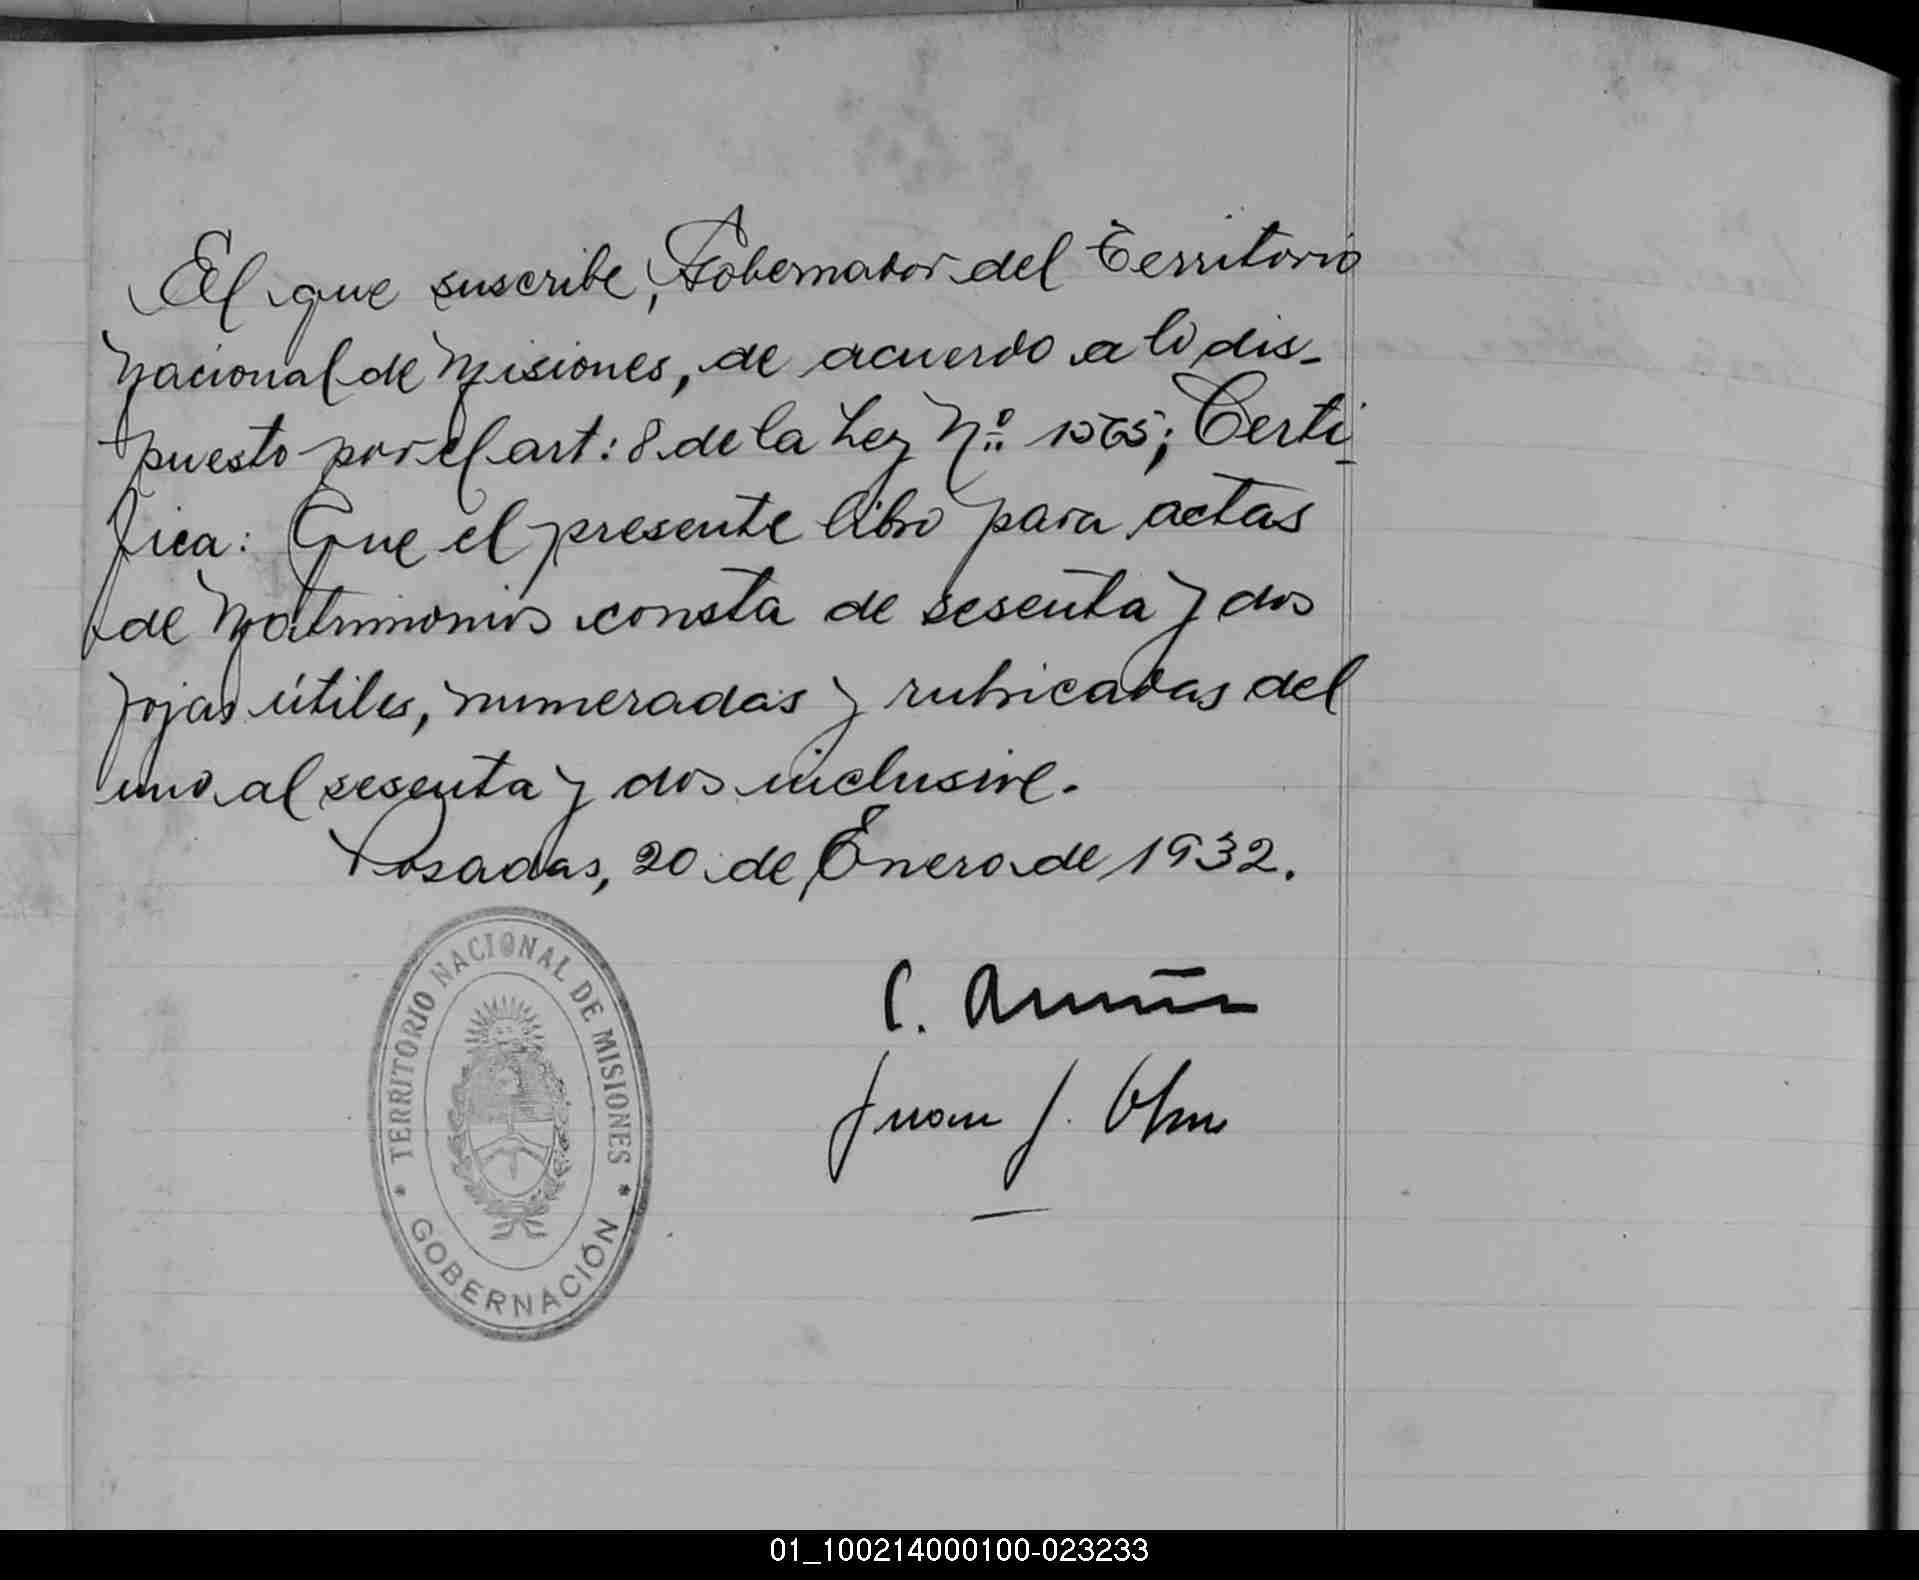 El que suscribe, Gobernador del Territorio
Nacional de Misiones, de acuerdo a lo dis-
puesto por el art: 8 de la Ley Nº 1565; Certi-
fica: Que el presente libro para actas
de Matrimonios consta de sesenta y dos
fojas útiles, numeradas y rubricadas del
uno al sesenta y dos inclusive.
Posadas, 20 de Enero de 1932.
C. Acuña
Juan J.
TERRITORIO NACIONAL DE MISIONES
* GOBERNACIÓN *
01_100214000100-023233